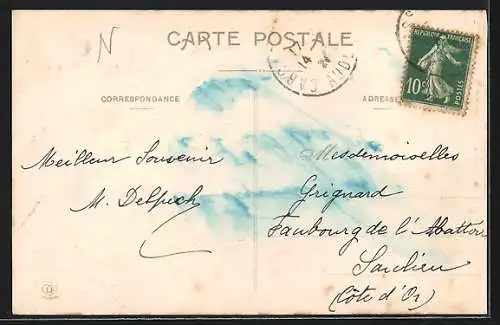 N
CARTE POSTALE
CORRESPONDANCE
ADRESSE
RÉPUBLIQUE FRANÇAISE
10c
POSTES
14
Meilleur Souvenir
M. Delpech
Mesdemoiselles
Grignard
Faubourg de l'Abattoir
Saulieu
(Côte d'Or)